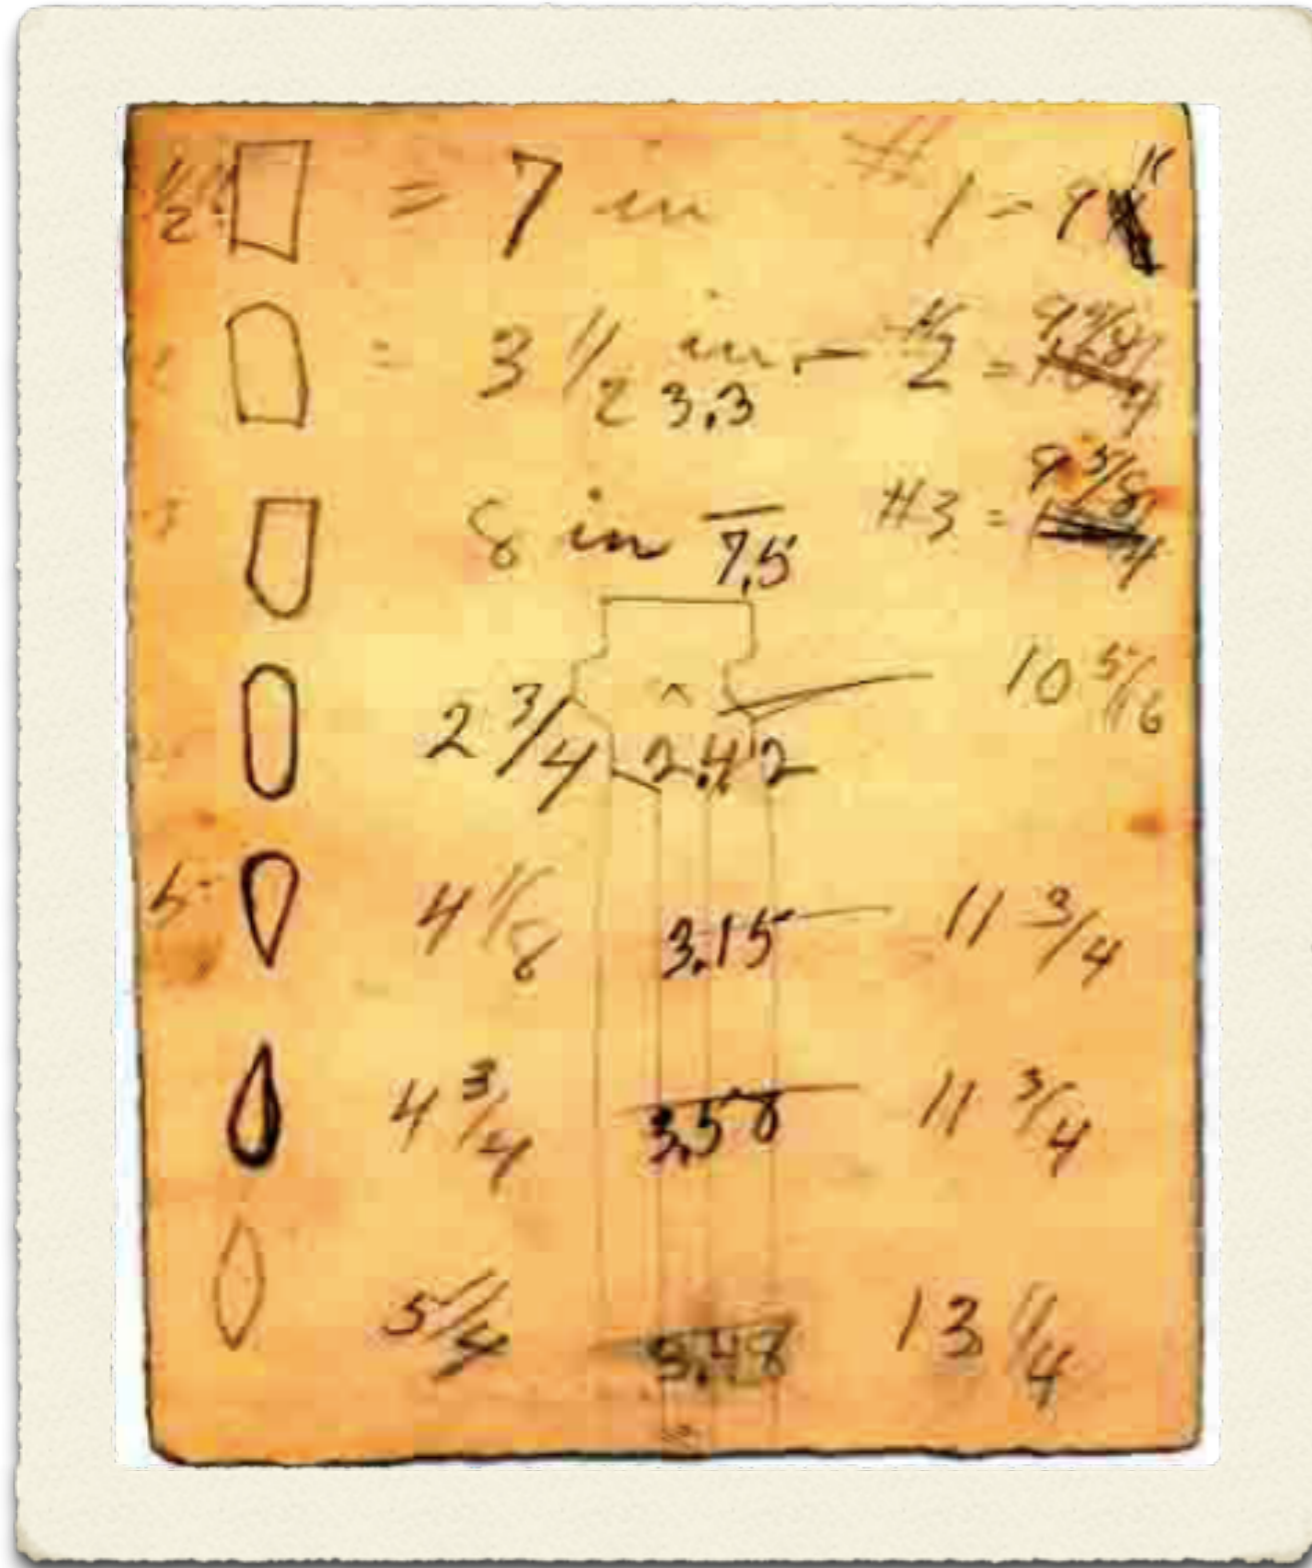 = 7 in # 1 -
= 3 1/2 in. - #2 =
3.3
8 in 7.5 #3 = 9 5/8
2 3/4 2.42 10 5/16
5 4 1/8 3.15 11 3/4
4 3/4 3.58 11 3/4
5 1/4 3.48 13 1/4